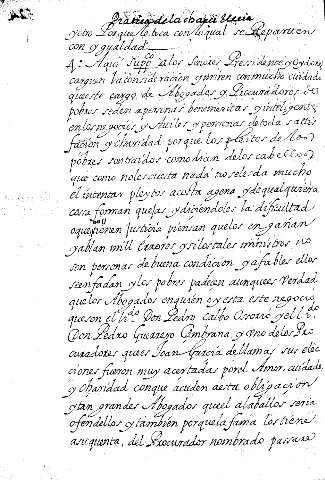 Pratica de la chancilleria
y otro Porque lo toca con lo qual se Reparten
con ygualdad
4: Aqui Supco a los Señores Presidente y Oydores
carguen la consideracion y miren con mucho cuidado
que este cargo de Abogados y Procuradores de
pobres se den a personas benemeritas y inteligentes
en los negocios y Aviles y personas de toda satis
facion y charidad porque los pleitos de los
pobres son traidos como dicen de los cabellos
que como no les cuesta nada no se les da mucho
el intentar pleytos a costa agena y de qualquiera
cosa forman quejas y diciendoles la dificultad
o que no tienen Justicia piensan que los engañan
y ablan mill errores y si los tales ministros no
son personas de buena condicion y afables ellos
se enfadan y los pobres padecen aunque es Verdad
que los Abogados en quien oy esta este negocio
que son el Ldo. Don Pedro Calbo Osorio y el Ldo
Don Pedro Guerrero Cambrana, y uno de los Pro
curadores que es Joan Garcia de llamas sus elec
ciones fueron muy acertadas por el Amor, cuidado,
y charidad con que acuden a esta obligacion
y tan grandes Abogados que el alaballos seria
ofendellos y tambien porque la fama los tiene
a su quenta, del Procurador nombrado passara